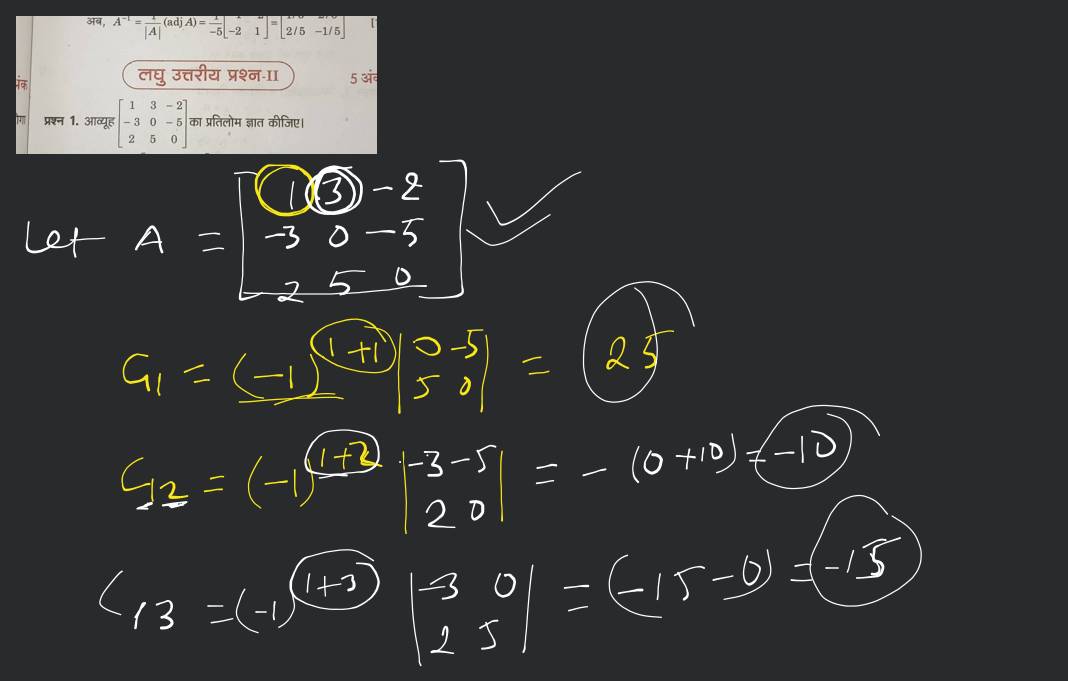 अब, A⁻¹ = 1/|A| (adj A) = 1/-5 [ -2 1 ] = [ 2/5 -1/5 ]
लघु उत्तरीय प्रश्न-II
5 अंक
प्रश्न 1. आव्यूह [ 1 3 -2 ; -3 0 -5 ; 2 5 0 ] का प्रतिलोम ज्ञात कीजिए।
Let A = [ 1 3 -2
-3 0 -5
2 5 0 ]
C11 = (-1)^1+1 | 0 -5 ; 5 0 | = 25
C12 = (-1)^1+2 | -3 -5 ; 2 0 | = - (0+10) = -10
C13 = (-1)^1+3 | -3 0 ; 2 5 | = (-15-0) = -15